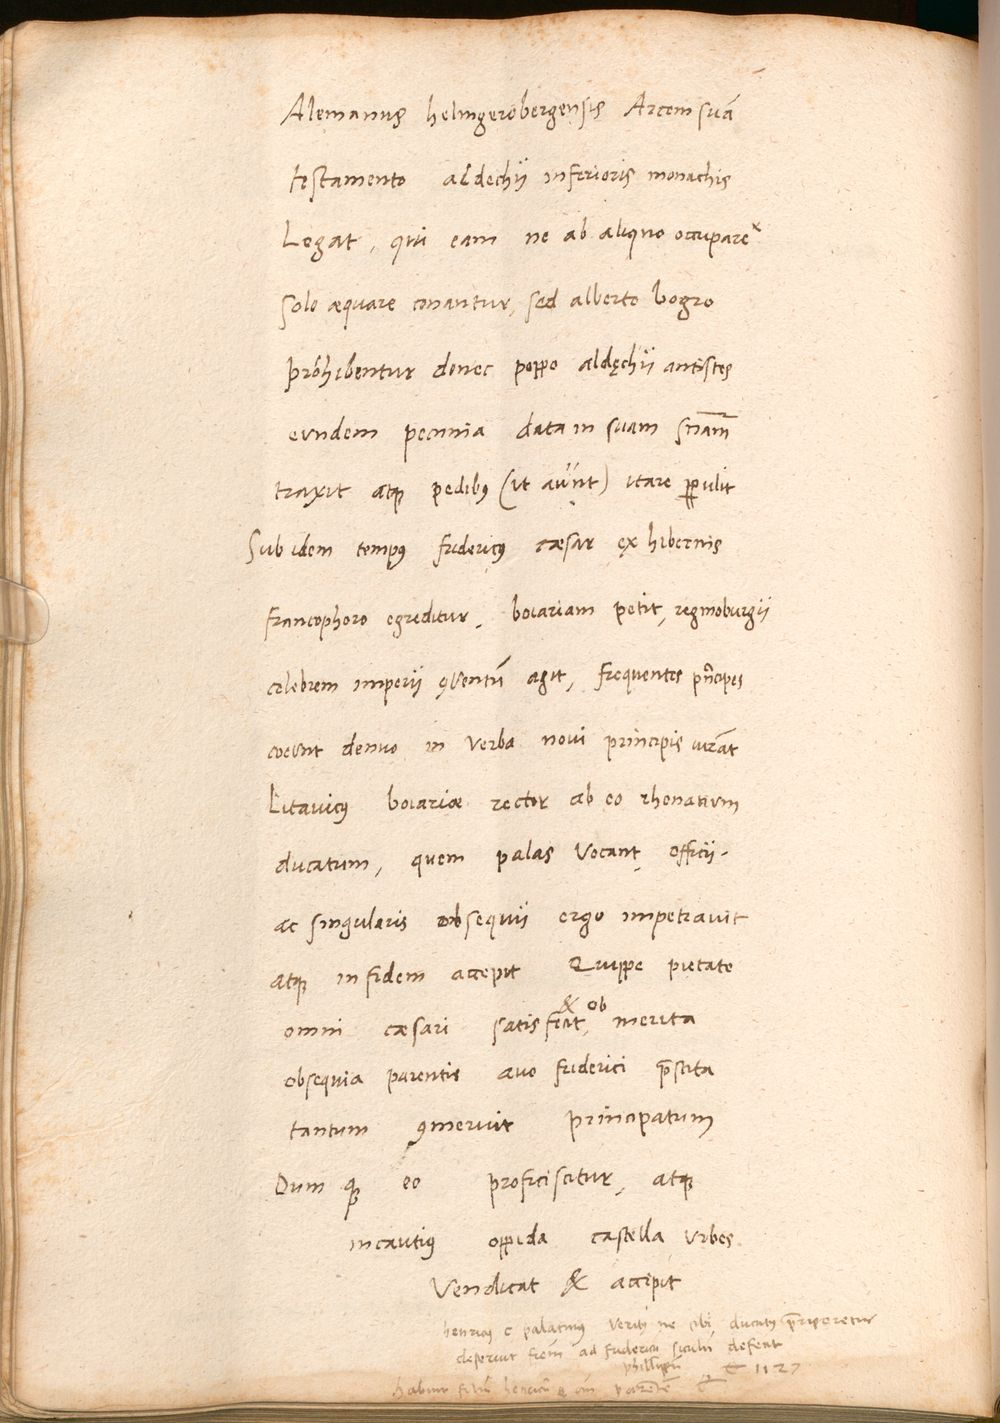 Alemanus helmgerobergensis Arcem suā
testamento aldechij inferioris monachis
Legat, qui eam ne ab aliquo occupare
solo æquare conantur, sed alberto bogro
prohibentur donec poppo aldęchij antistes
eundem pecunia data in suam snām
traxit atq pedibus (ut aiunt) itare perpulit
Sub idem tempus fridericus cæsar ex hibernis
francophoro egreditur, boiariam petit, reginoburgij
celebrem imperij conventū agit, frequentes prīcipes
coeunt denuo in verba novi principis iurāt
Litavicus boiariæ rector ab eo rhenanum
ducatum, quem palas vocant officij
ac singularis obsequij ergo impetravit
atq in fidem accepit Quippe pietate
omni cæsari satisfecit, & ob merita
obsequia parentis avo friderici præstita
tantum commeruit principatum
Dum q eo proficiscitur, atq
incautius oppida castella urbes
Vendicat & accipit
henricus c palatinus Veriti ne sibi ducatus
deseruit frēm ad fridericū siculū
phillippū 1127
habuit filiū henricū